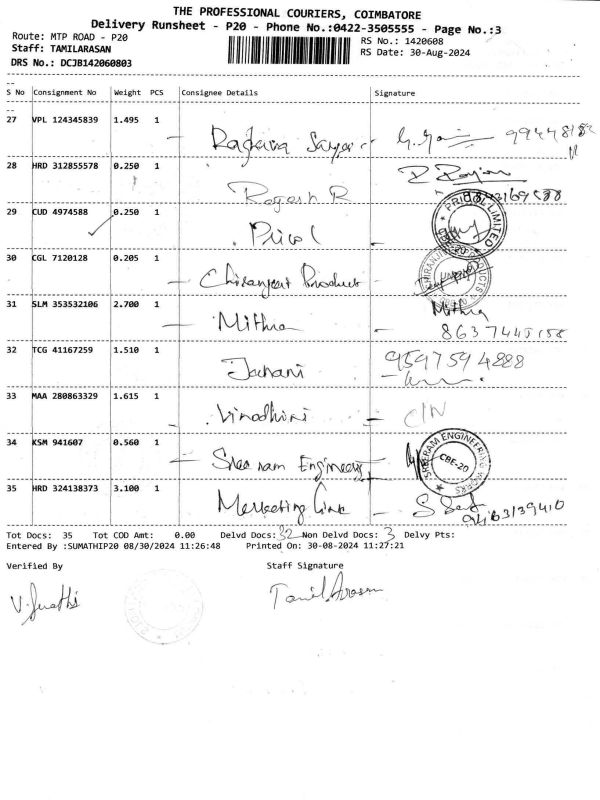 THE PROFESSIONAL COURIERS, COIMBATORE
Delivery Runsheet - P20 - Phone No.:0422-3505555 - Page No.:3
Route: MTP ROAD - P20
RS No.: 1420608
Staff: TAMILARASAN
RS Date: 30-Aug-2024
DRS No.: DCJB142060803
S No Consignment No Weight PCS Consignee Details Signature
27 VPL 124345839 1.495 1
28 HRD 312855578 0.250 1 Rogesh R
29 CUD 4974588 0.250 1 Pricol PRICOL LIMITED
30 CGL 7120128 0.205 1 Chiranjeevi Product
31 SLM 353532106 2.700 1 Mithra Mithra
32 TCG 41167259 1.510 1 Janani 9597594888
33 MAA 280863329 1.615 1 Vinodhini
34 KSM 941607 0.560 1 Sree ram Engineers SREERAM ENGINEERING WORKS CBE-20
35 HRD 324138373 3.100 1 Marketing Link
Tot Docs: 35 Tot COD Amt: 0.00 Delvd Docs: 32 Non Delvd Docs: 3 Delvy Pts:
Entered By :SUMATHIP20 08/30/2024 11:26:48 Printed On: 30-08-2024 11:27:21
Verified By Staff Signature
Tamil.Arasan